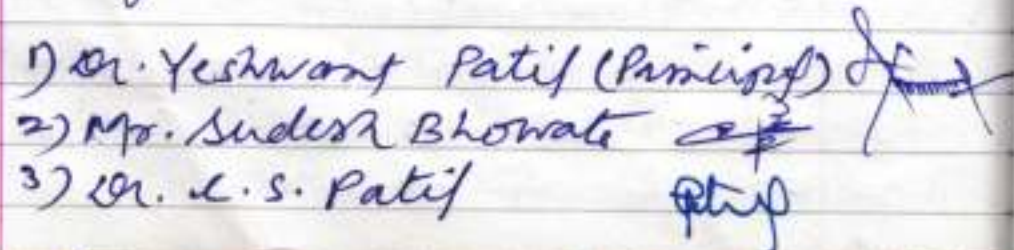 1) Dr. Yeshwant Patil (Principal)
2) Mr. Sudesh Bhowate
3) Dr. L. S. Patil